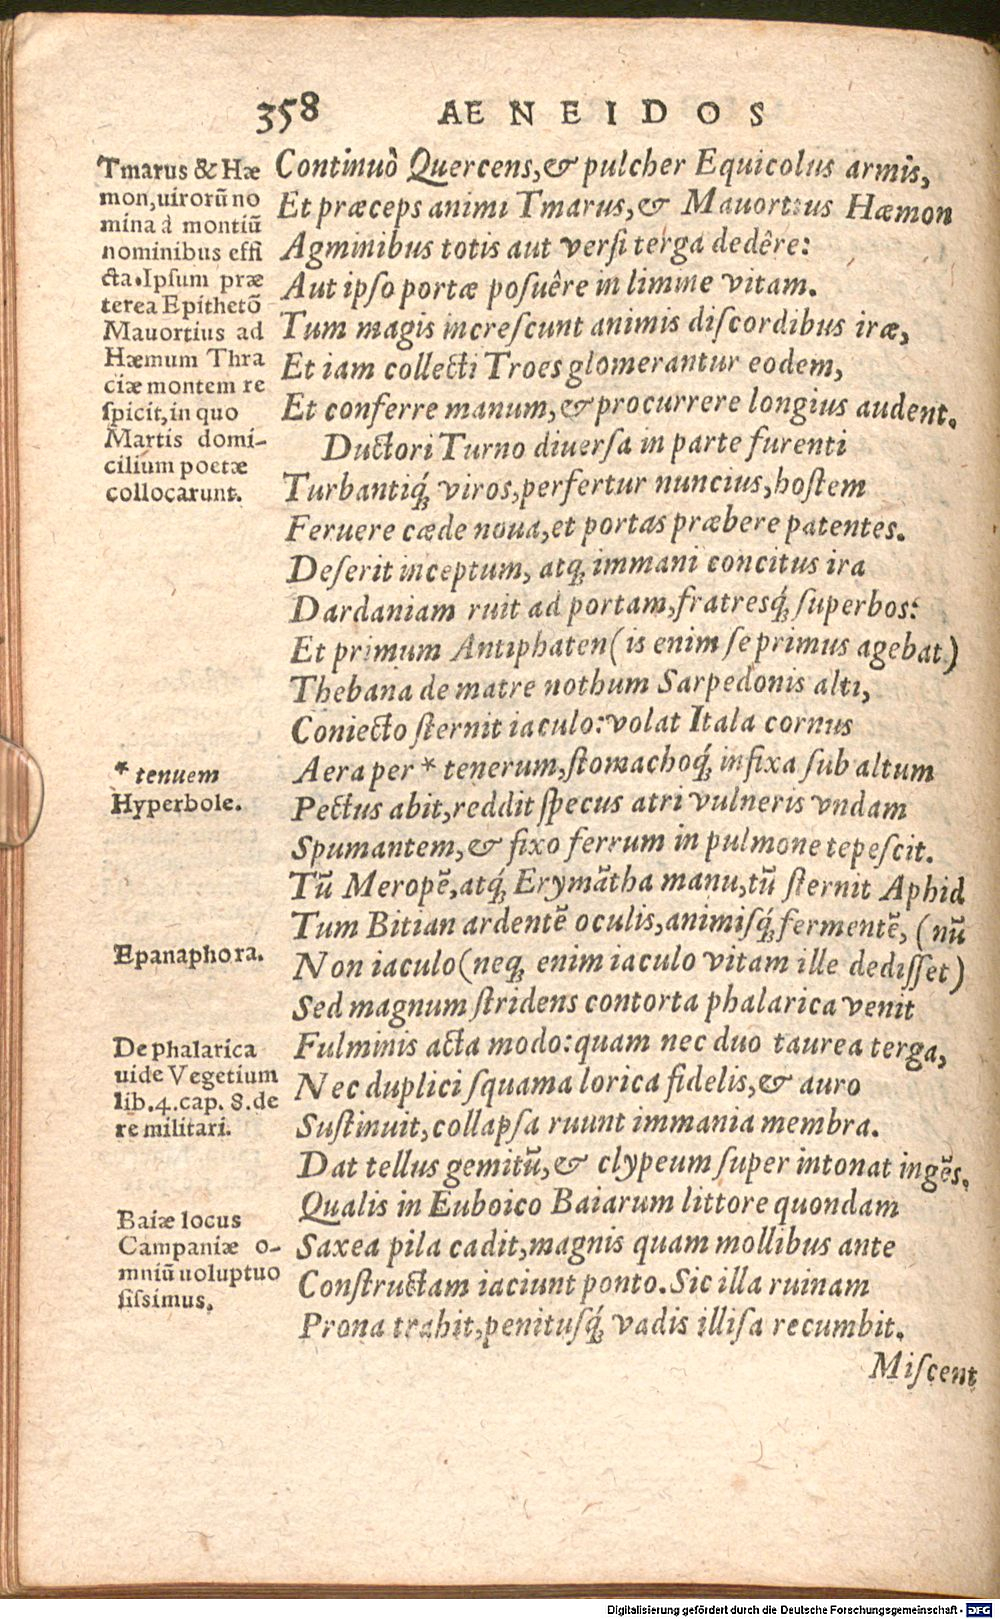 358 AENEIDOS
Tmarus & Hæ
mon, uirorũ no
mina à montiũ
nominibus effi
cta. Ipsum præ
terea Epithetõ
Mauortius ad
Hæmum Thra
ciæ montem re
spicit, in quo
Martis domi-
cilium poetæ
collocarunt.
Continuò Quercens, & pulcher Equicolus armis,
Et præceps animi Tmarus, & Mauortius Hæmon
Agminibus totis aut versi terga dedêre:
Aut ipso portæ posuêre in limine vitam.
Tum magis increscunt animis discordibus iræ,
Et iam collecti Troes glomerantur eodem,
Et conferre manum, & procurrere longius audent.
Ductori Turno diuersa in parte furenti
Turbantiq́; viros, perfertur nuncius, hostem
Feruere cæde noua, et portas præbere patentes.
Deserit inceptum, atq; immani concitus ira
Dardaniam ruit ad portam, fratresq́; superbos:
Et primum Antiphaten (is enim se primus agebat)
Thebana de matre nothum Sarpedonis alti,
Coniecto sternit iaculo: volat Itala cornus
* tenuem
Hyperbole.
Aera per * tenerum, stomachoq́; infixa sub altum
Pectus abit, reddit specus atri vulneris vndam
Spumantem, & fixo ferrum in pulmone tepescit.
Tũ Meropẽ, atq́; Erymãtha manu, tũ sternit Aphid
Tum Bitian ardentẽ oculis, animisq́; fermentẽ, (nũ
Epanaphora.
Non iaculo (neq; enim iaculo vitam ille dedisset)
Sed magnum stridens contorta phalarica venit
De phalarica
uide Vegetium
lib. 4. cap. 8. de
re militari.
Fulminis acta modo: quam nec duo taurea terga,
Nec duplici squama lorica fidelis, & auro
Sustinuit, collapsa ruunt immania membra.
Dat tellus gemitũ, & clypeum super intonat ingẽs.
Baiæ locus
Campaniæ o-
mniũ uoluptuo
sissimus.
Qualis in Euboico Baiarum littore quondam
Saxea pila cadit, magnis quam mollibus ante
Constructam iaciunt ponto. Sic illa ruinam
Prona trahit, penitusq́; vadis illisa recumbit.
Miscent
Digitalisierung gefördert durch die Deutsche Forschungsgemeinschaft - DFG